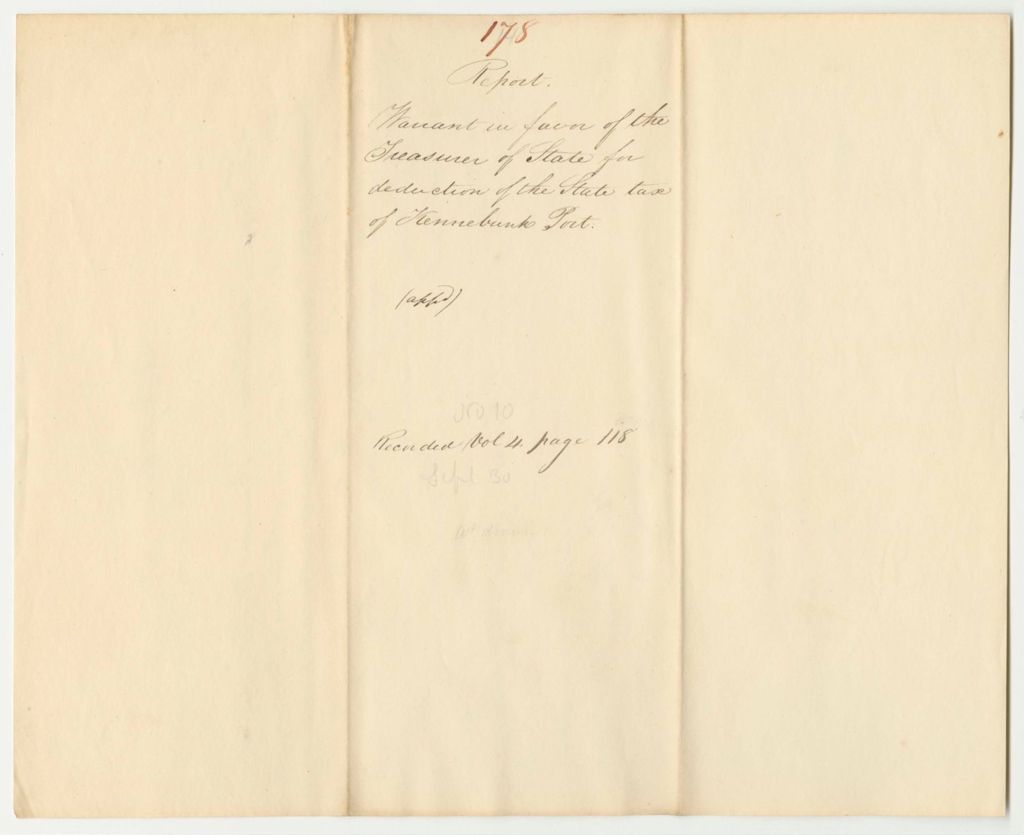 178
Report.
Warrant in favor of the
Treasurer of State for
deduction of the State tax
of Kennebunk Port.
(appd)
No 10
Recorded Vol 4. page 118
Sept 30